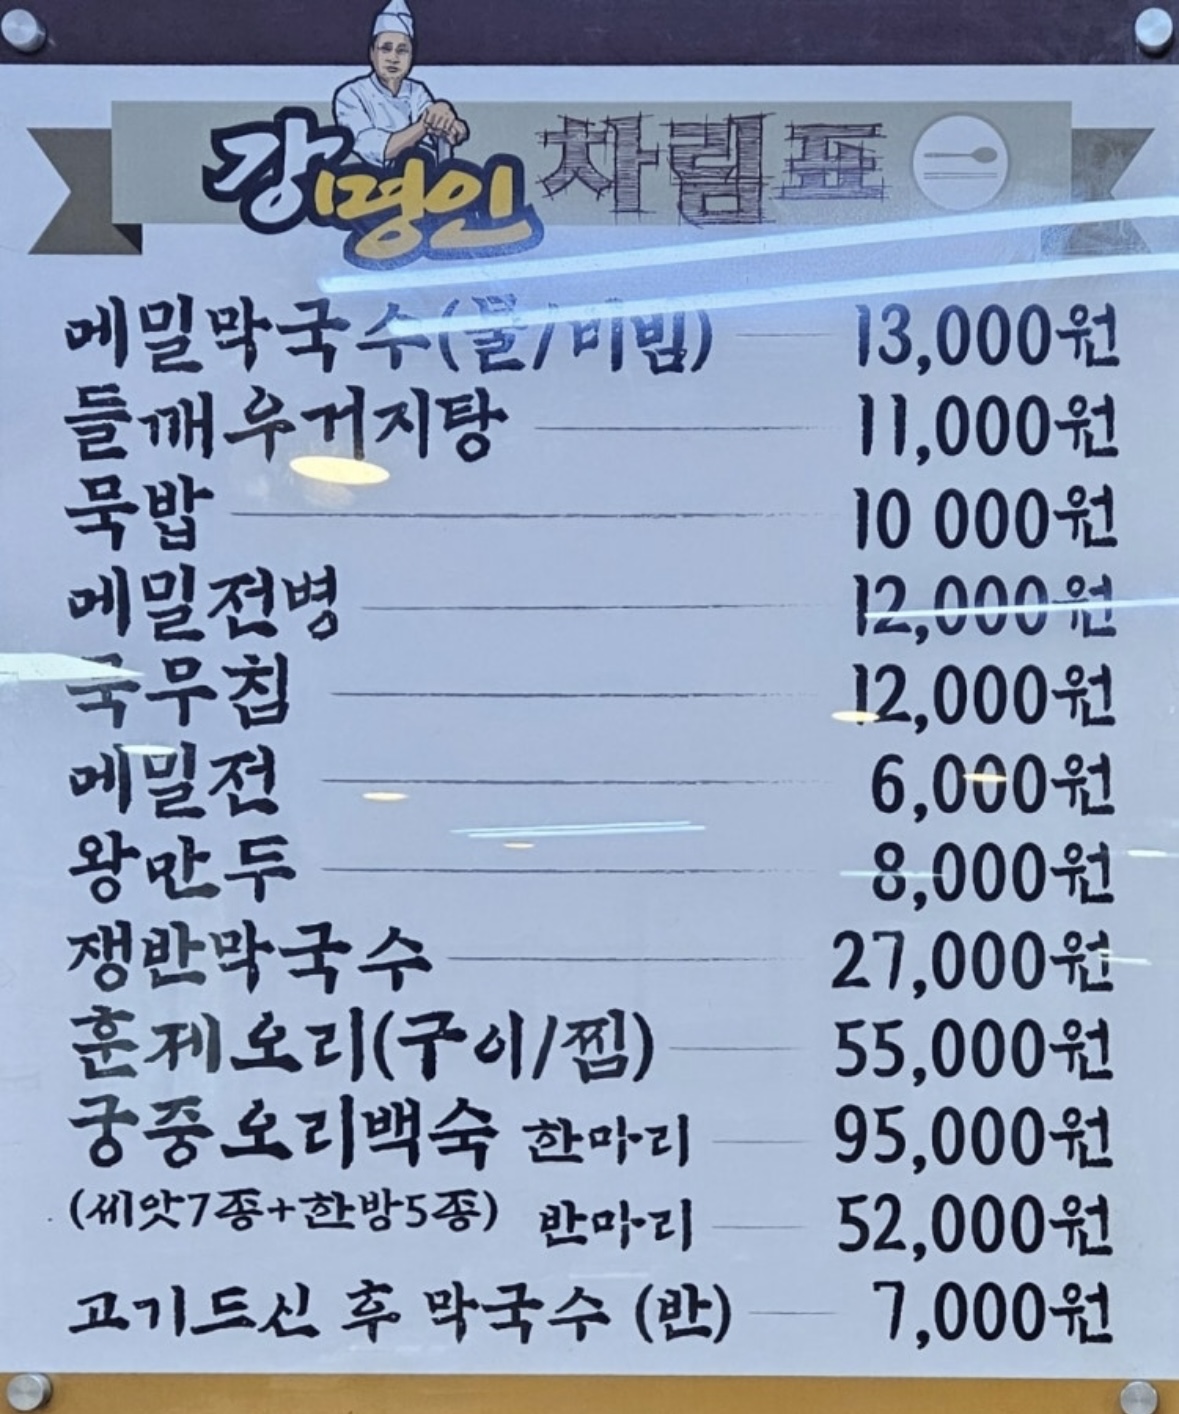 강명인 차림표
메밀막국수(물/비빔) 13,000원
들깨우거지탕 11,000원
묵밥 10 000원
메밀전병 12,000원
묵무침 12,000원
메밀전 6,000원
왕만두 8,000원
쟁반막국수 27,000원
훈제오리(구이/찜) 55,000원
궁중오리백숙 한마리 95,000원
(씨앗7종+한방5종) 반마리 52,000원
고기드신 후 막국수 (반) 7,000원